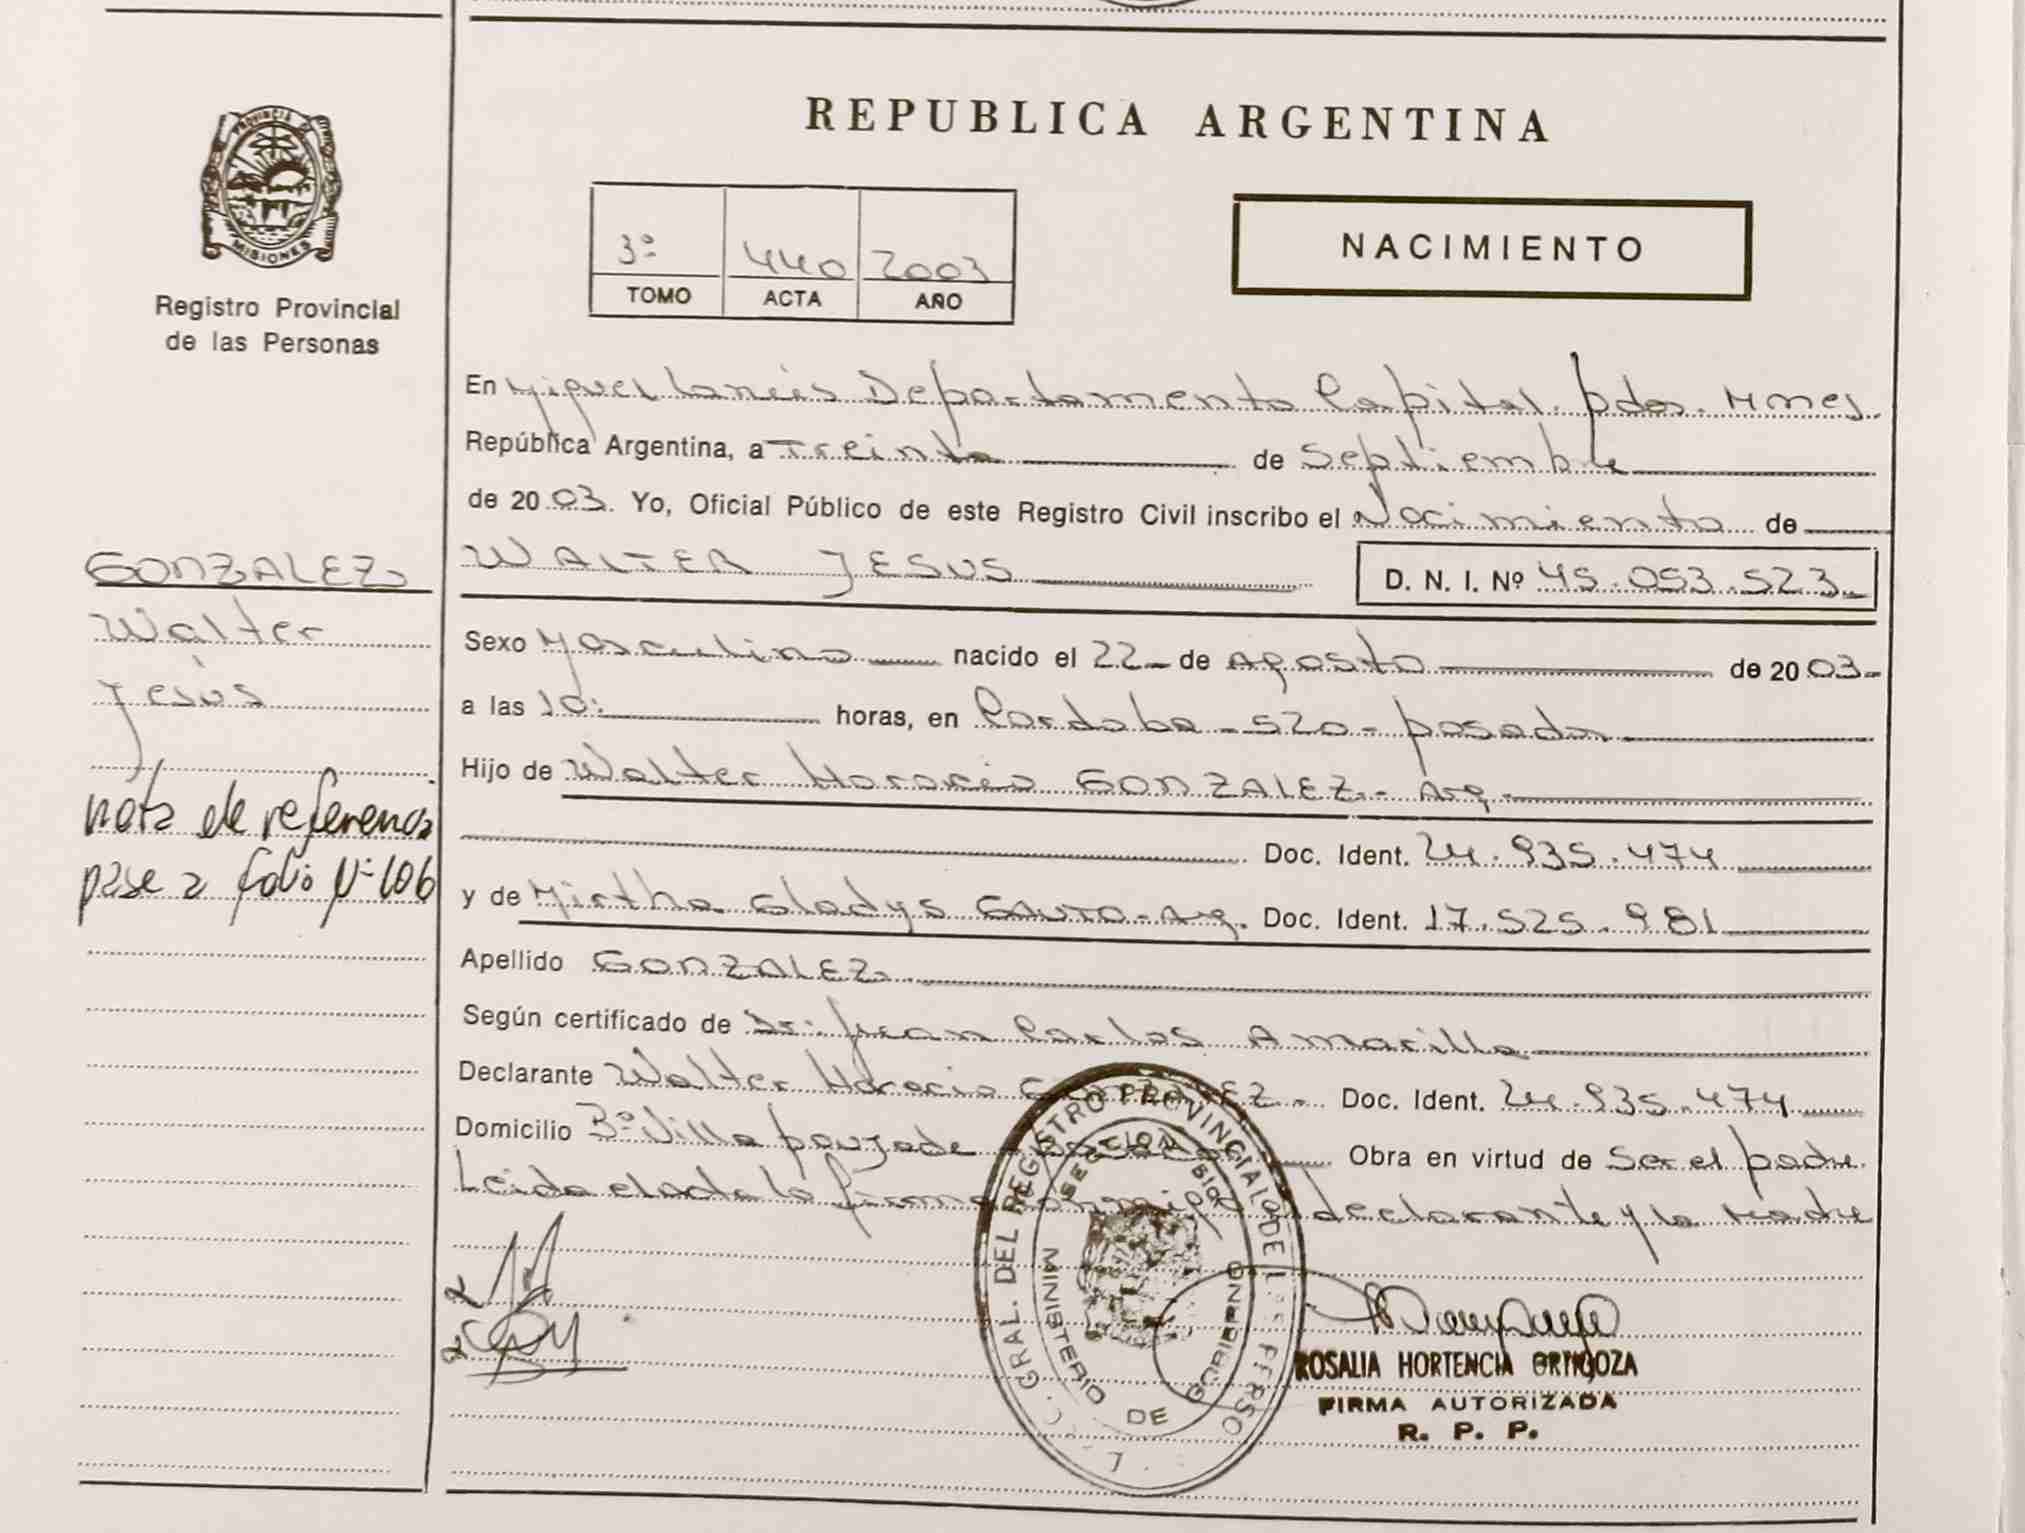 REPUBLICA ARGENTINA
PROVINCIA DE
MISIONES
Registro Provincial
de las Personas
3º 440 2003
TOMO ACTA AÑO
NACIMIENTO
En Miguel Lanús Departamento Capital. Pdas. Mnes.
República Argentina, a Treinta de Septiembre
de 2003. Yo, Oficial Público de este Registro Civil inscribo el Nacimiento de
WALTER JESUS D. N. I. Nº 45.053.523
Sexo Masculino nacido el 22 de Agosto de 2003
a las 10: horas, en Cordoba - 520 - Posadas
Hijo de Walter Horacio GONZALEZ - Arg.
Doc. Ident. 24.935.474
y de Mirtha Gladys GAUTO - Arg. Doc. Ident. 17.525.981
Apellido GONZALEZ
Según certificado de Dr: Juan Carlos Amarilla
Declarante Walter Horacio GONZALEZ - Doc. Ident. 24.935.474
Domicilio Bº Villa Poujade Obra en virtud de Ser el padre.
Leida el acta la firma conmigo el declarante y la Madre
GONZALEZ
Walter
Jesús
nota de referencia
pase a folio Nº 106
GRAL. DEL REGISTRO PROVINCIAL DE LAS PERSO
MINISTERIO DE GOBIERNO
ROSALIA HORTENCIA ORTIGOZA
FIRMA AUTORIZADA
R. P. P.